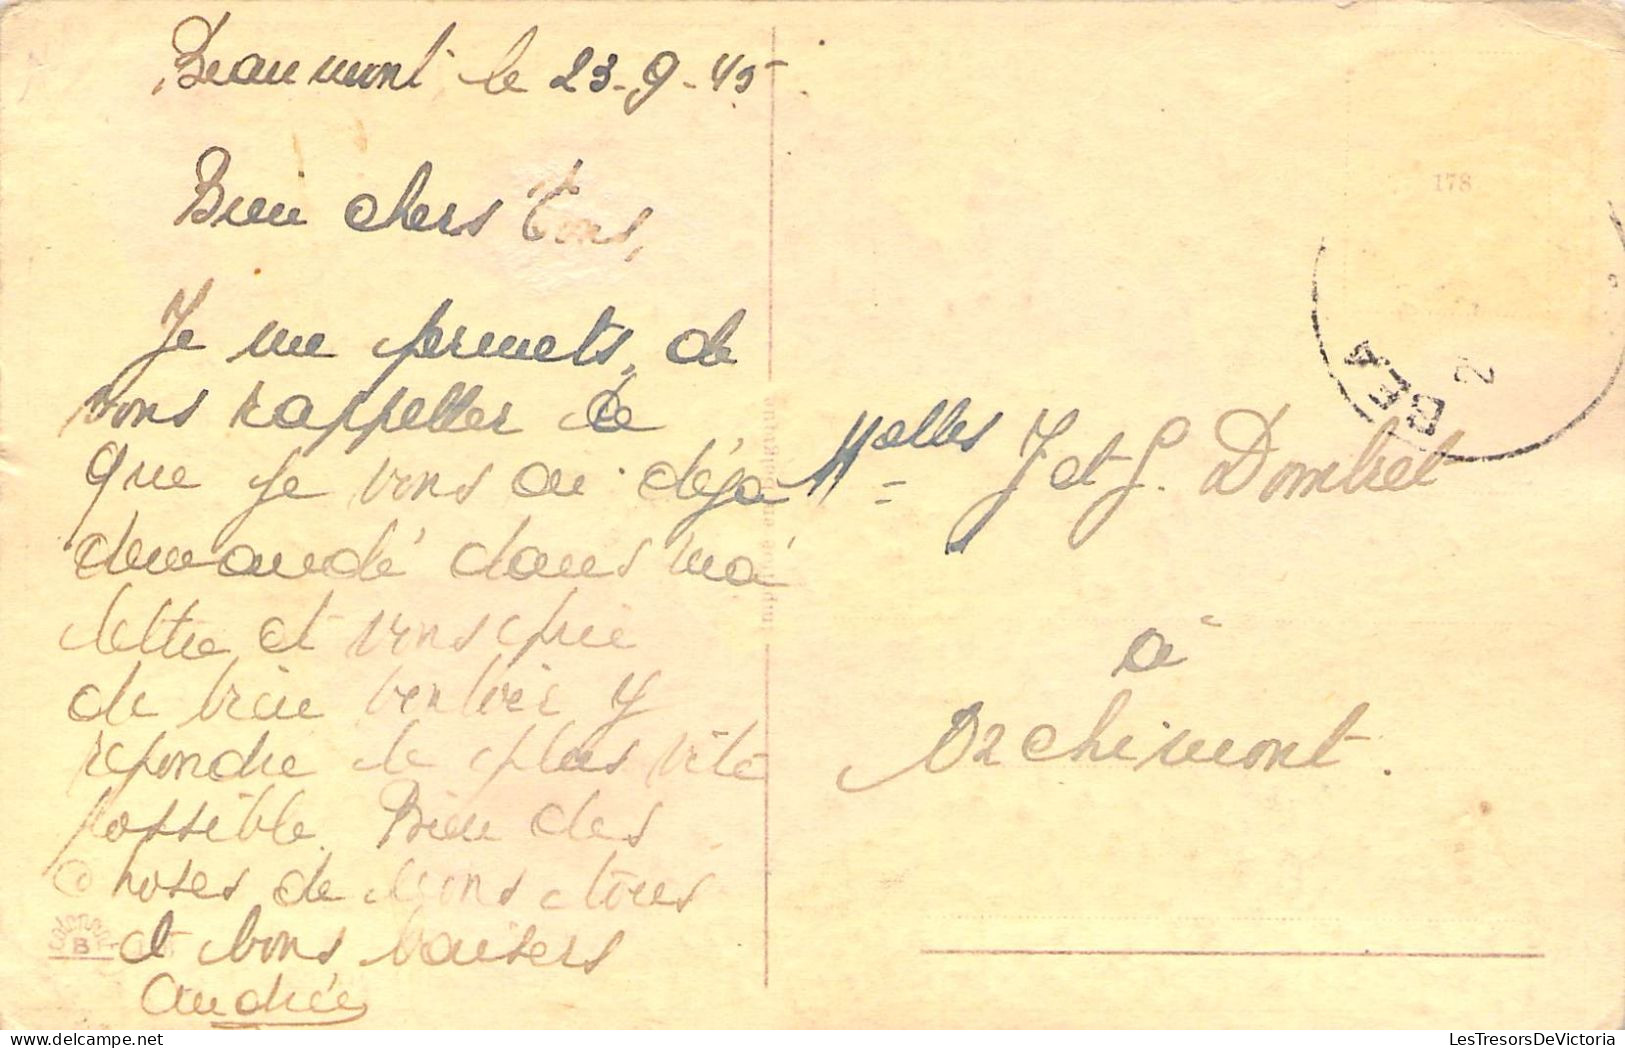 Beaumont, le 23-9-45
Bien chers Tous,
Je me permets, de
vous rappeller ce
que je vous ai déja
demandé dans ma
lettre et vous prie
de bien vouloir y
repondre le plus vite
possible. Bien des
choses de tous
et bons baisers
Andrée
Melles J et G. Dombret
à
Orchimont.
178
BEA
2
B
LesTresorsDeVictoria